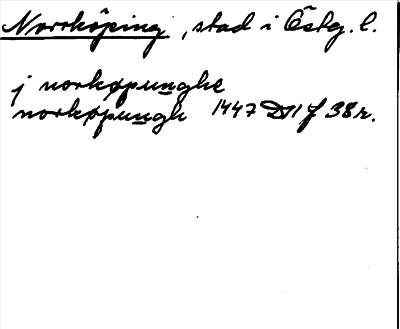 Norrköping, stad i Östg. l.
j norkøpunghe
norkøpungh 1447 D11 f 38r.